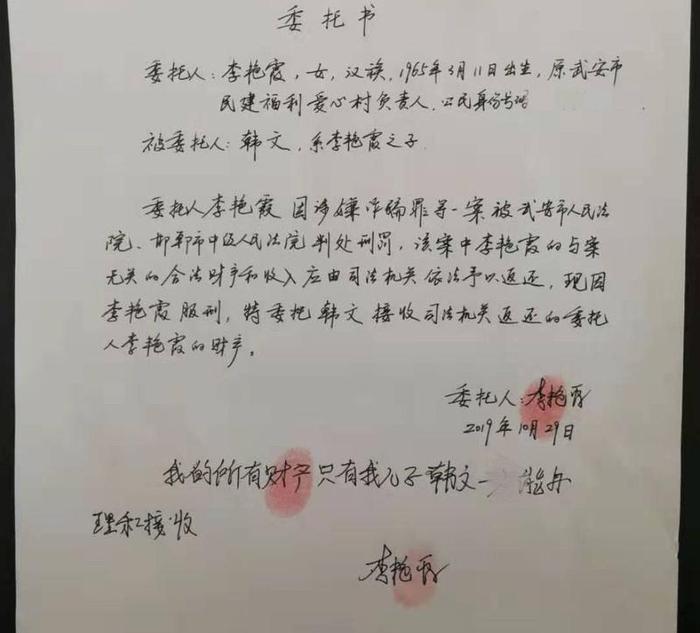 委托书
委托人：李艳霞，女，汉族，1965年3月11日出生，原武安市
民建福利爱心村负责人，公民身份号码
被委托人：韩文，系李艳霞之子
委托人李艳霞因涉嫌诈骗罪等一案被武安市人民法
院、邯郸市中级人民法院判处刑罚，该案中李艳霞的与案
无关的合法财产和收入应由司法机关依法予以返还，现因
李艳霞服刑，特委托韩文接收司法机关返还的委托
人李艳霞的财产。
委托人：李艳霞
2019年10月29日
我的所有财产只有我儿子韩文一 能办
理和接收
李艳霞